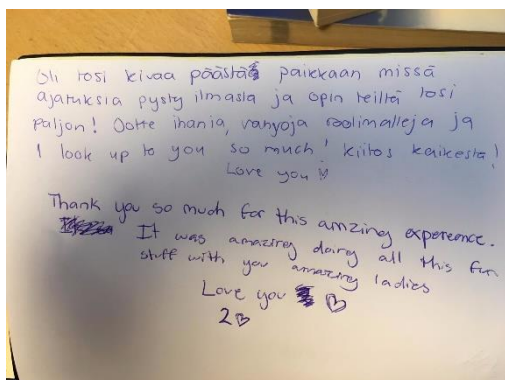 Oli tosi kivaa päästä paikkaan missä
ajatuksia pysty ilmasta ja opin teiltä tosi
paljon! Ootte ihania, vanyoja roolimalleja ja
I look up to you so much! kiitos kaikesta!
Love you ♡
Thank you so much for this amzing expereonce.
It was amazing doing all this fun
stuff with you amazing ladies
Love you ♡
2♡